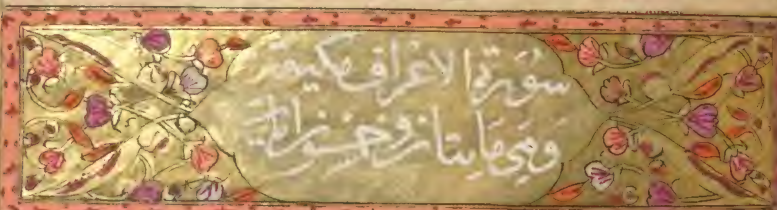 سورة الاعراف مكية
وهي مايتان وخمس اية